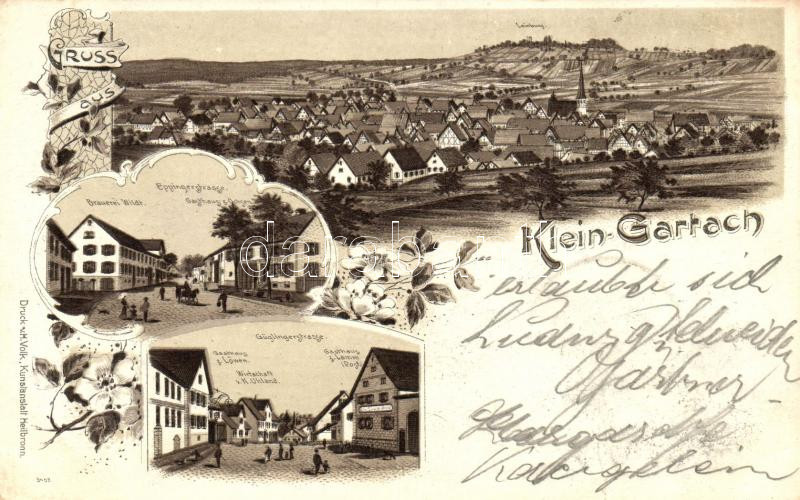 GRUSS
aus
Leinburg.
Eppingerstrasse.
Brauerei Wildt.
Gasthaus z. Ochsen
Klein-Gartach
erlaubt sich
Ludwig
Gärtner
Güglingerstrasse.
Gasthaus
z. Löwen.
Wirtschaft
v. K. Uhland.
Gasthaus
z. Lamm
(Post)
Druck v. H. Volk, Kunstanstalt Heilbronn.
darabanth